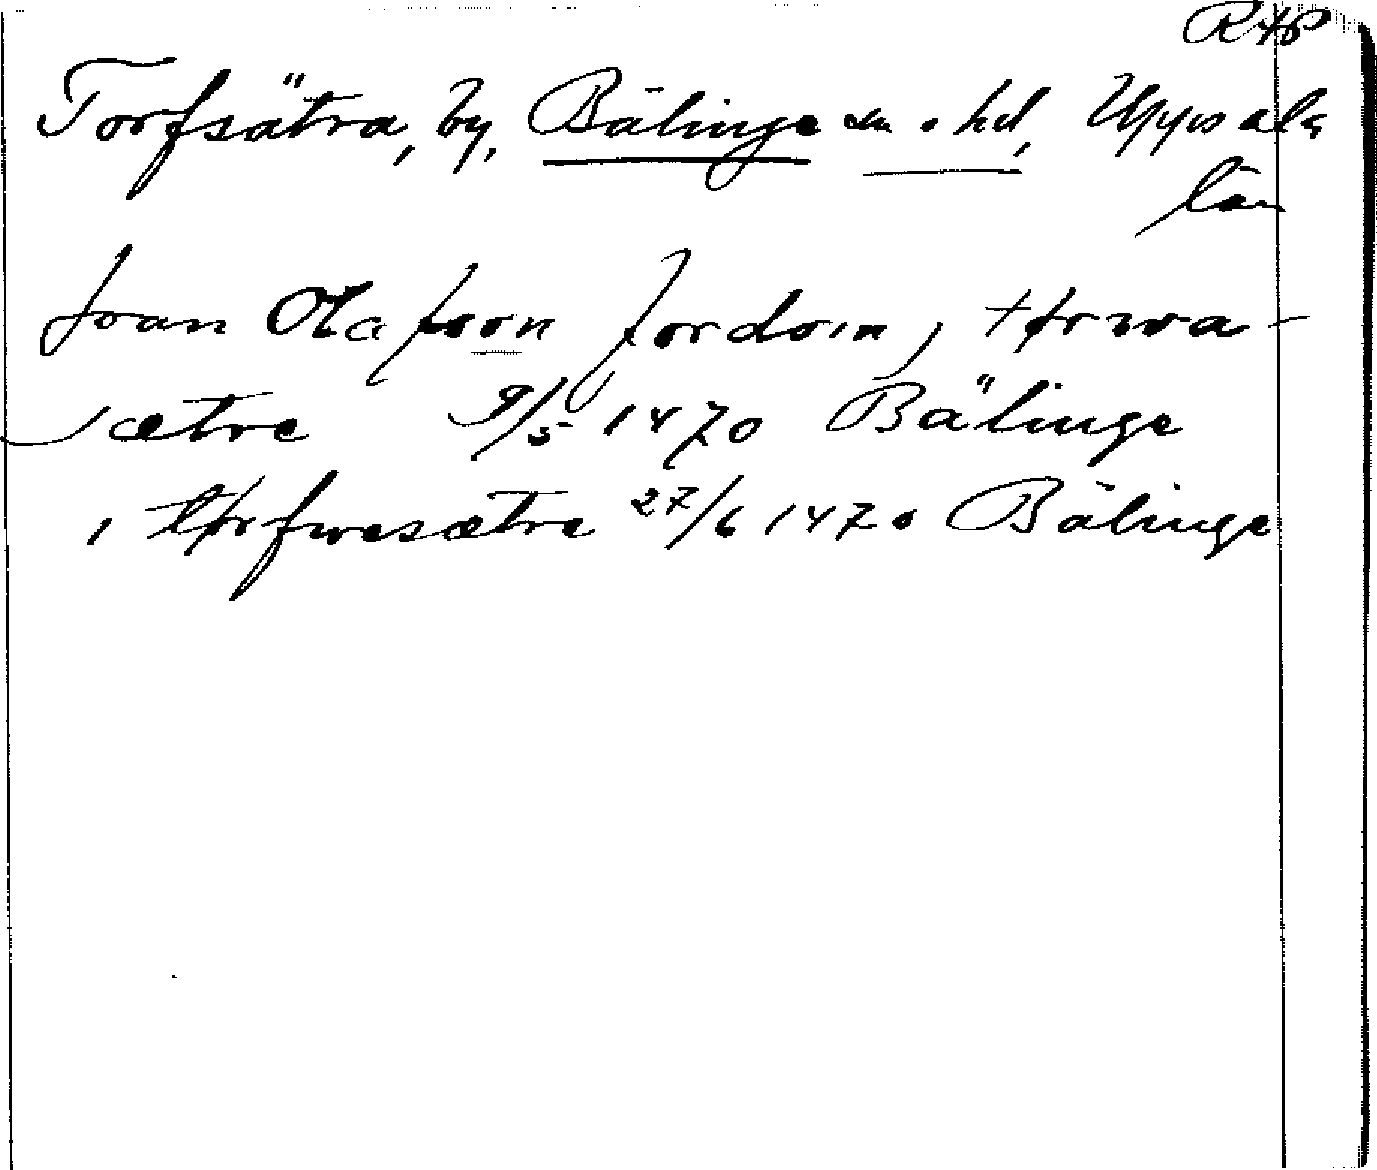 RAP
Torfsätra, by, Bälinge sn o. hd, Uppsala
län
Joan Olafsson Jordom, i tørwa-
sætre 9/5 1470 Bälinge
i tørfwesætre 27/6 1470 Bälinge